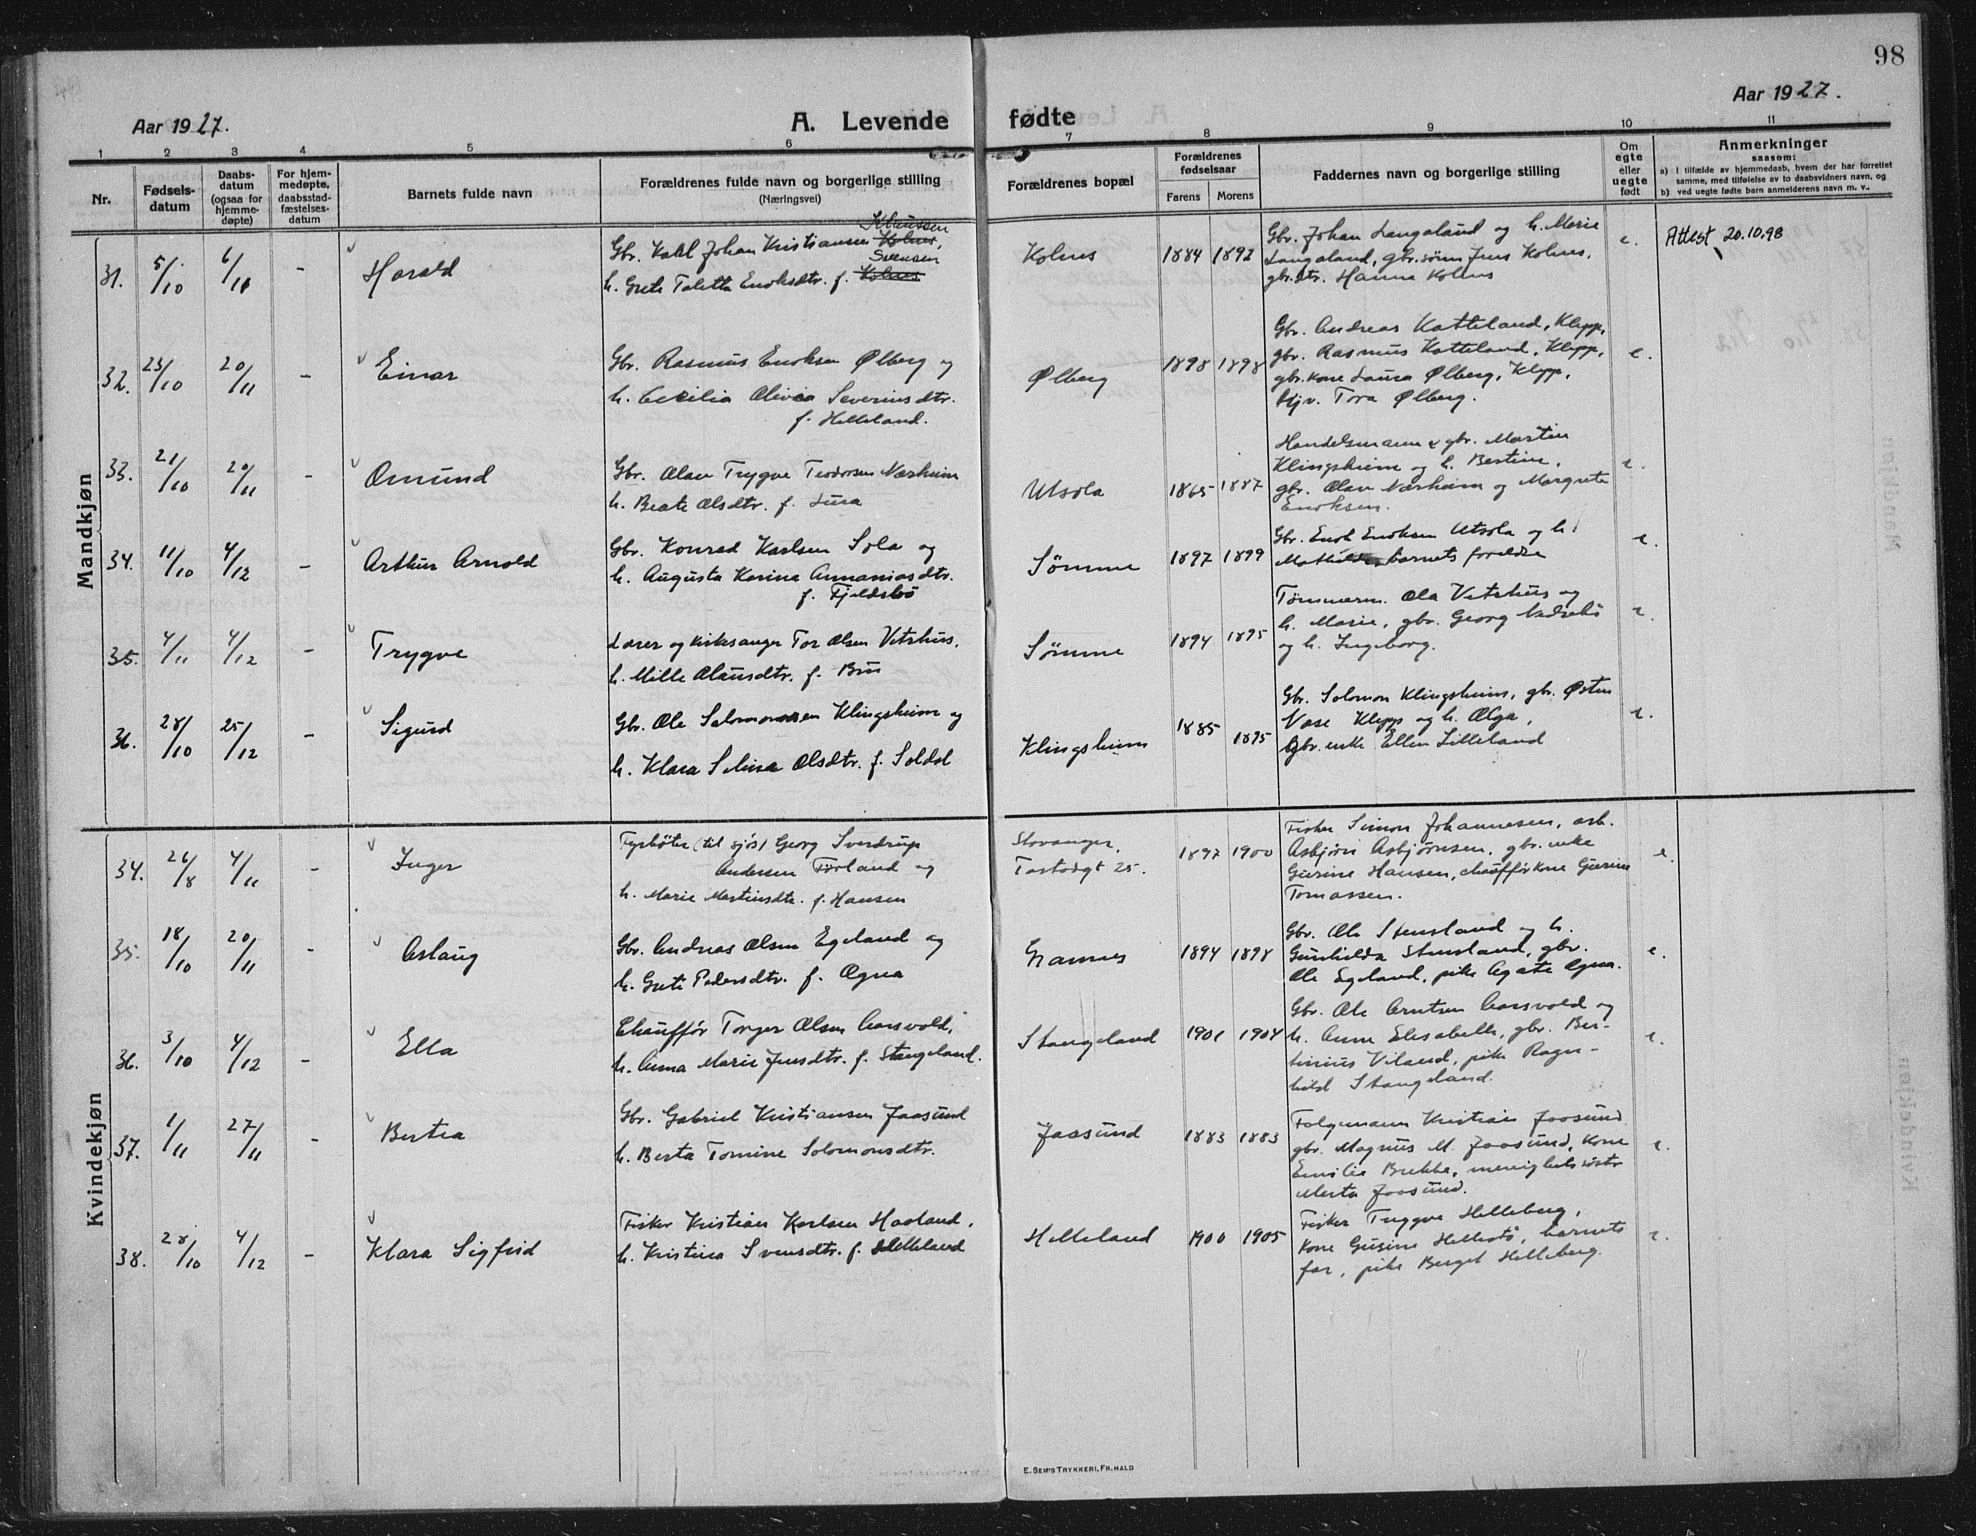 98
Aar 1927.
A. Levende fødte
Aar 1927.
1 2 3 4 5 6 7 8 9 10 11
Nr.
Fødsels-
datum
Daabs-
datum
(ogsaa for
hjemme-
døpte)
For hjem-
medøpte,
daabsstad-
fæstelses-
datum
Barnets fulde navn
Forældrenes fulde navn og borgerlige stilling
(Næringsvei)
Forældrenes bopæl
Forældrenes
fødselsaar
Farens Morens
Faddernes navn og borgerlige stilling
Om
egte
eller
uegte
født
Anmerkninger
saasom:
a) I tilfælde av hjemmedaab, hvem der har forrettet
samme, med tilføielse av to daabsvidners navn, og
b) ved uegte fødte barn anmelderens navn m. v..
Mandkjøn
31. 5/10 6/11 - Harald
Gbr. Karl Johan Kristiansen Kolnes,
h. Grete Taletta Enoksdtr. f. Kolnes
Svensen
Kolnes 1884 1892
Gbr. Johan Langaland og h. Marie
Langaland, gbr.søn Jens Kolnes,
gbr.dtr. Hanna Kolnes
e.
Attest 20.10.98
32. 23/10 20/11 - Einar
Gbr. Rasmus Enoksen Ølberg og
h. Cecilia Olivia Severinsdtr.
f. Helleland.
Ølberg 1898 1898
Gbr. Andreas Katteland, Klepp,
gbr. Rasmus Katteland, Klepp,
gbr.kone Laura Ølberg, Klepp,
Tora Ølberg.
e.
33. 21/10 20/11 - Omund
Gbr. Olav Trygve Teodorsen Nærheim
h. Beate Olsdtr. f. Lura
Utsola 1865 1887
Handelsmann & gbr. Martin
Klingsheim og h. Bertine,
gbr. Olav Nærheim og Margrete
Enoksen.
e.
34. 11/10 4/12 - Arthur Arnold
Gbr. Konrad Karlsen Sola og
h. Augusta Karina Annaniasdtr.
f. Fjeldsbø
Sømme 1897 1899
Gbr. Enok Enoksen Utsola og h.
barnets foreldre
e.
35. 4/11 4/12 Trygve
Lærer og kirkesanger Tor Olsen Vetrhus,
h. Mille Olausdtr. f. Bru
Sømme 1894 1895
Tømmerm. Ola Vetrhus og
h. Marie, gbr. Georg Nedrebø
og h. Ingeborg.
e.
36. 28/10 25/12 - Sigurd
Gbr. Ole Salomonsen Klingsheim og
h. Klara Selina Olsdtr. f. Soldal
Klingsheim 1885 1895
Gbr. Solomon Klingsheim, gbr. Østen
Nase Klepp og h. Olga,
gbr.enke Ellen Lilleland
e.
Kvindekjøn
34. 26/8 4/11 - Inger
Fyrbøter (til sjøs) Georg Sverdrup
Andersen Førland og
h. Marie Martinsdtr. f. Hansen
Stavanger,
Tastadgt 25.
1897 1900
Fisker Simon Johannesen, arb.
Asbjørn Asbjørnsen, gbr.enke
Gurine Hansen, chaufførkone Gurine
Tomassen.
e.
35. 18/10 20/11 - Aslaug
Gbr. Andreas Olsen Egeland og
h. Grete Pedersdtr. f. Ogna
Grannes 1894 1898
Gbr. Ole Stensland og h.
Gunhilda Stensland, gbr.
Ole Egeland, pike Agate Ogna.
e.
36. 3/10 4/12 - Ella
Chauffør Torger Olsen Aarsvold,
h. Anna Marie Jensdtr. f. Stangeland.
Stangeland 1901 1904
Gbr. Ole Arntsen Aarsvold og
h. Anne Elisabeth, gbr. Ber-
tinius Viland, pike Ragn-
hild Stangeland.
e.
37. 1/11 27/11 - Bertea
Gbr. Gabriel Kristiansen Jaasund
h. Berta Tomine Solomonsdtr.
Jaasund 1883 1883
Kristian Jaasund
gbr. Magnus M. Jaasund, kone
Emilie Brekke, menighetssøster
Marta Jaasund.
e.
38. 28/10 4/12 - Klara Sigfrid
Fisker Kristian Karlsen Haaland,
h. Kristina Svensdtr. f. Helleland
Helleland 1900 1905
Fisker Tryggve Helleberg,
kone Gurine Hellestø, barnets
far, pike Berget Helleberg.
e.
E. SEM'S TRYKKERI, FR.HALD